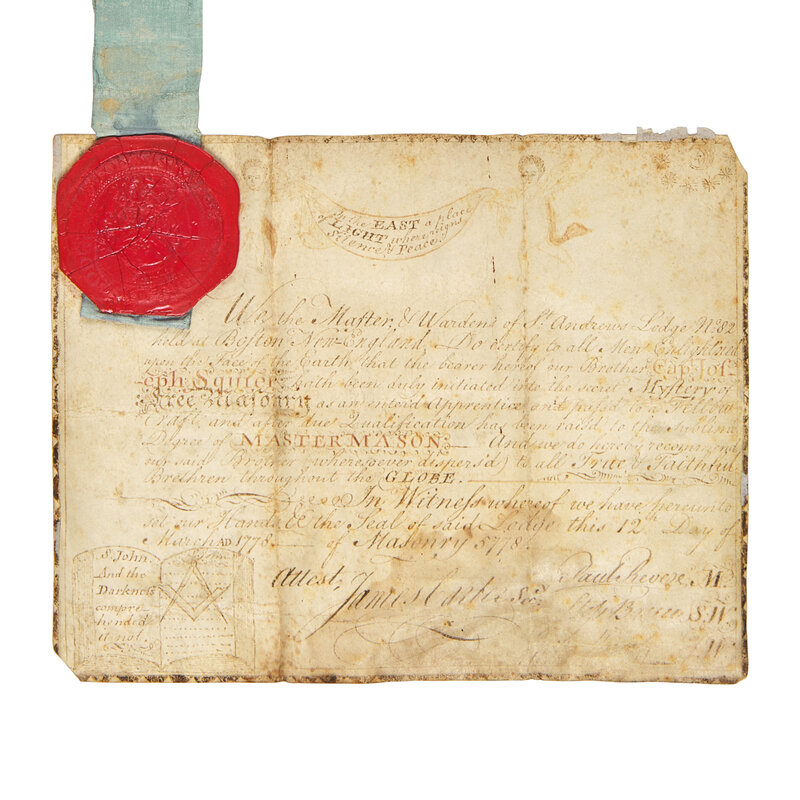 In the EAST a place
of LIGHT where reigns
Silence & Peace.
We the Maſter, & Wardens of St. Andrews Lodge No. 82
held at Boſton New-England. Do certify to all Men Enlightened
upon the Face of the Earth, that the bearer hereof our Brother Cap. Joſ-
eph Squier hath been duly initiated into the secret Myſtery of
Free Masonry as an enterd Apprentice and paſsed to a Fellow
Craft and after due Qualification has been raisd to the Sublime
Degree of MASTER MASON: And we do hereby recommend
our said Brother (wheresoever dispers'd) to all True & Faithful
Brethren throughout the GLOBE.
In Witneſs whereof we have hereunto
set our Hands & the Seal of said Lodge this 12th Day of
March AD 1778 of Masonry 5778.
Attest, James Carter Secy
Paul Revere M
S.W
W
St. John.
And the
Darkneſs
compre-
hended
it not.